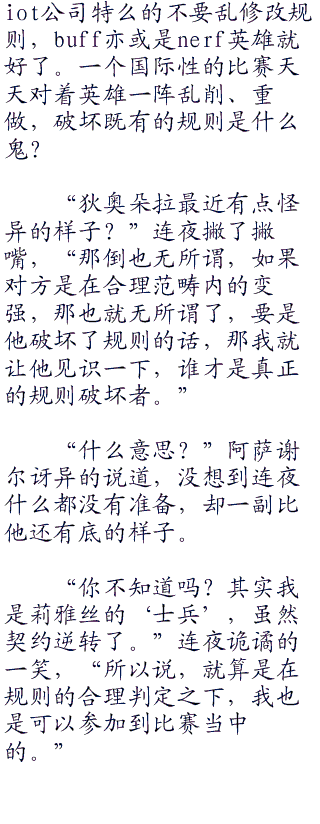 iot公司特么的不要乱修改规
则，buff亦或是nerf英雄就
好了。一个国际性的比赛天
天对着英雄一阵乱削、重
做，破坏既有的规则是什么
鬼？
“狄奥朵拉最近有点怪
异的样子？”连夜撇了撇
嘴，“那倒也无所谓，如果
对方是在合理范畴内的变
强，那也就无所谓了，要是
他破坏了规则的话，那我就
让他见识一下，谁才是真正
的规则破坏者。”
“什么意思？”阿萨谢
尔讶异的说道，没想到连夜
什么都没有准备，却一副比
他还有底的样子。
“你不知道吗？其实我
是莉雅丝的‘士兵’，虽然
契约逆转了。”连夜诡谲的
一笑，“所以说，就算是在
规则的合理判定之下，我也
是可以参加到比赛当中
的。”